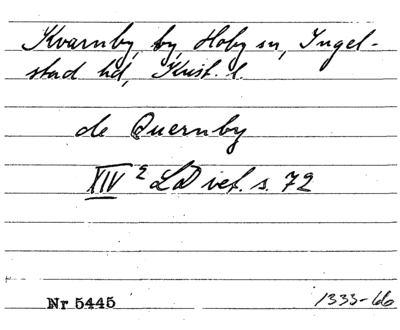 Kvarnby, by, Hoby sn, Ingel-
stad hd, Krist. l.
de Quernby
XIV 2 LD vet. s. 72
Nr 5445 1333-66